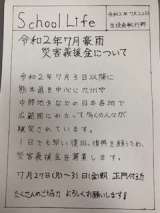 School Life
令和2年7月22日
生徒会執行部
令和2年7月豪雨
災害義援金について
令和2年7月3日以降に
熊本県を中心に九州や
中部地方などの日本各地で
広範囲にわたって多くの人が
被災されています。
1日でも早い復旧、復興を願われ、
災害義援金を募集します。
7月27日(月)〜31日(金)朝 正門付近
たくさんのご協力よろしくお願いします！